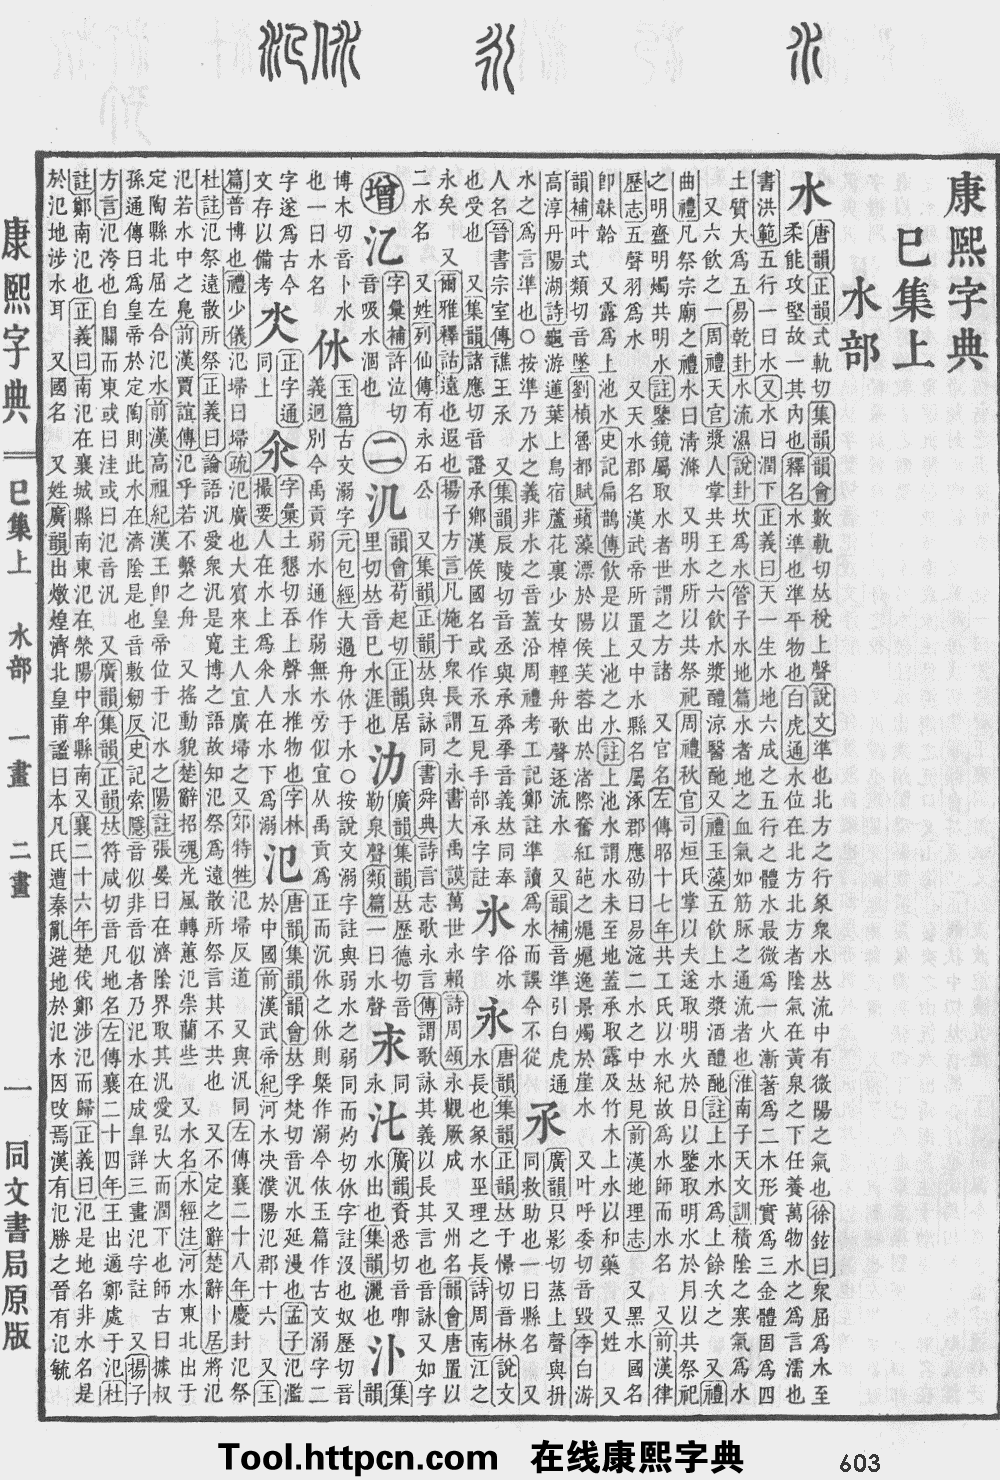 康熙字典
巳集上
水部
水 唐韻正韻式軌切集韻韻會數軌切𠀤稅上聲說文準也北方之行象衆水𠀤流中有微陽之氣也徐鉉曰衆屈爲水至
柔能攻堅故一其內也釋名水準也準平物也白虎通水位在北方北方者陰氣在黃泉之下任養萬物水之爲言濡也
書洪範五行一曰水又水曰潤下正義曰天一生水地六成之五行之體水最微爲一火漸著爲二木形實爲三金體固爲四
土質大爲五易乾卦水流濕說卦坎爲水管子水地篇水者地之血氣如筋脉之通流者也淮南子天文訓積陰之寒氣爲水
又六飮之一周禮天官漿人掌共王之六飮水漿醴涼醫酏又禮玉藻五飮上水漿酒醴酏註上水水爲上餘次之 又禮
曲禮凡祭宗廟之禮水曰淸滌 又明水所以共祭祀周禮秋官司烜氏掌以夫遂取明火於日以鑒取明水於月以共祭祀
之明齍明燭共明水註鑒鏡屬取水者世謂之方諸 又官名左傳昭十七年共工氏以水紀故爲水師而水名 又前漢律
歷志五聲羽爲水 又天水郡名漢武帝所置又中水縣名屬涿郡應劭曰易滱二水之中𠀤見前漢地理志 又黑水國名
卽韎韐 又露爲上池水史記扁鵲傳飮是以上池之水註上池水謂水未至地蓋承取露及竹木上水以和藥 又姓 又
韻補叶式類切音墜劉楨魯都賦蘋藻漂於陽侯芙蓉出於渚際奮紅葩之㶿㶿逸景燭於崖水 又叶呼委切音毀李白游
高淳丹陽湖詩龜游蓮葉上鳥宿蘆花裏少女棹輕舟歌聲逐流水 又韻補音準引白虎通
水之爲言準也○按準乃水之義非水之音蓋沿周禮考工記鄭註準讀爲水而誤今不從
氶 廣韻只影切蒸上聲與抍
同救助也一曰縣名 又
人名晉書宗室傳譙王氶 又集韻辰陵切音丞與承𠬻巹音義𠀤同奉
也受也 又集韻諸應切音證承鄕漢侯國名或作氶互見手部承字註
氷 俗冰
字
永 唐韻集韻正韻𠀤于憬切音栐說文
水長也象水巠理之長詩周南江之
永矣 又爾雅釋詁遠也遐也揚子方言凡施于衆長謂之永書大禹謨萬世永賴詩周頌永觀厥成 又州名韻會唐置以
二水名 又姓列仙傳有永石公 又集韻正韻𠀤與詠同書舜典詩言志歌永言傳謂歌詠其義以長其言也音詠又如字
增
氿 字彙補許泣切
音吸水涸也
二
氿 韻會苟起切正韻居
里切𠀤音巳水涯也
氻 廣韻集韻𠀤歷德切音
勒泉聲類篇一曰水聲
㲾 同
永
㲺 廣韻資悉切音喞
水出也集韻灑也
汴 集
韻
博木切音卜水
也一曰水名
㲻 玉篇古文溺字元包經大過舟㲻于水○按說文溺字註與弱水之弱同而灼切㲻字註沒也奴歷切音
義迥別今禹貢弱水通作弱無水旁似宜从禹貢爲正而沉㲻之㲻則槩作溺今依玉篇作古文溺字二
字遂爲古今
文存以備考
㲼 正字通
同上
氽 字彙土懇切吞上聲水推物也字林
撮要人在水上爲氽人在水下爲溺
氾 唐韻集韻韻會𠀤孚梵切音汎水延漫也孟子氾濫
於中國前漢武帝紀河水決濮陽氾郡十六 又玉
篇普博也禮少儀氾埽曰埽疏氾廣也大賔來主人宜廣埽之又郊特牲氾埽反道 又與汎同左傳襄二十八年慶封氾祭
杜註氾祭遠散所祭正義曰論語汎愛衆汎是寬博之語故知氾祭爲遠散所祭言其不共也 又不定之辭楚辭卜居將氾
氾若水中之鳧前漢賈誼傳氾乎若不繫之舟 又搖動貌楚辭招魂光風轉蕙氾崇蘭些 又水名水經注河水東北出于
定陶縣北屈左合氾水前漢高祖紀漢王卽皇帝位于氾水之陽註張晏曰在濟陰界取其汎愛弘大而潤下也師古曰據叔
孫通傳曰爲皇帝於定陶則此水在濟陰是也音敷劒反史記索隱音似非音似者乃汜水在成臯詳三畫汜字註 又揚子
方言氾洿也自關而東或曰注或曰氾音汎 又廣韻集韻正韻𠀤符咸切音凡地名左傳襄二十四年王出適鄭處于氾杜
註鄭南氾也正義曰南氾在襄城縣南東氾在滎陽中牟縣南又襄二十六年楚伐鄭涉氾而歸正義曰氾是地名非水名是
於氾地涉水耳 又國名 又姓廣韻出燉煌濟北皇甫謐曰本凡氏遭秦亂避地於氾水因攺焉漢有氾勝之晉有氾毓
康熙字典 巳集上 水部 一畫 二畫 一 同文書局原版
Tool.httpcn.com 在线康熙字典 603